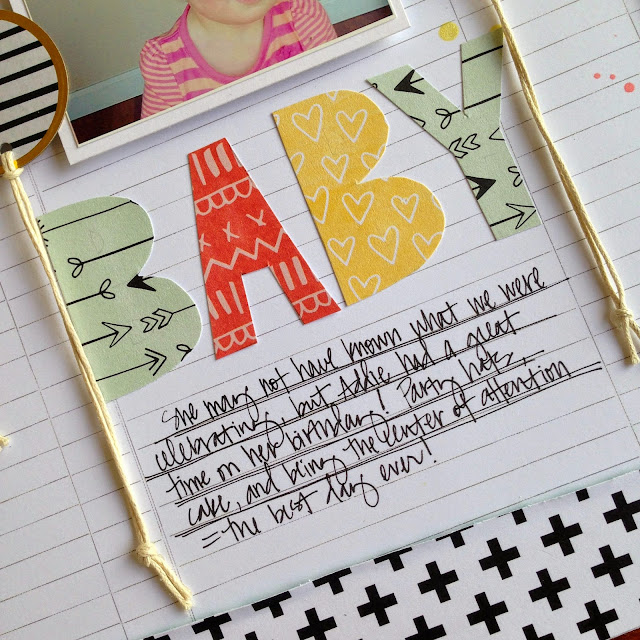 BABY
She may not have known what we were
celebrating, but Addie had a great
time on her birthday! Party hats,
cake, and being the center of attention
= the best day ever!